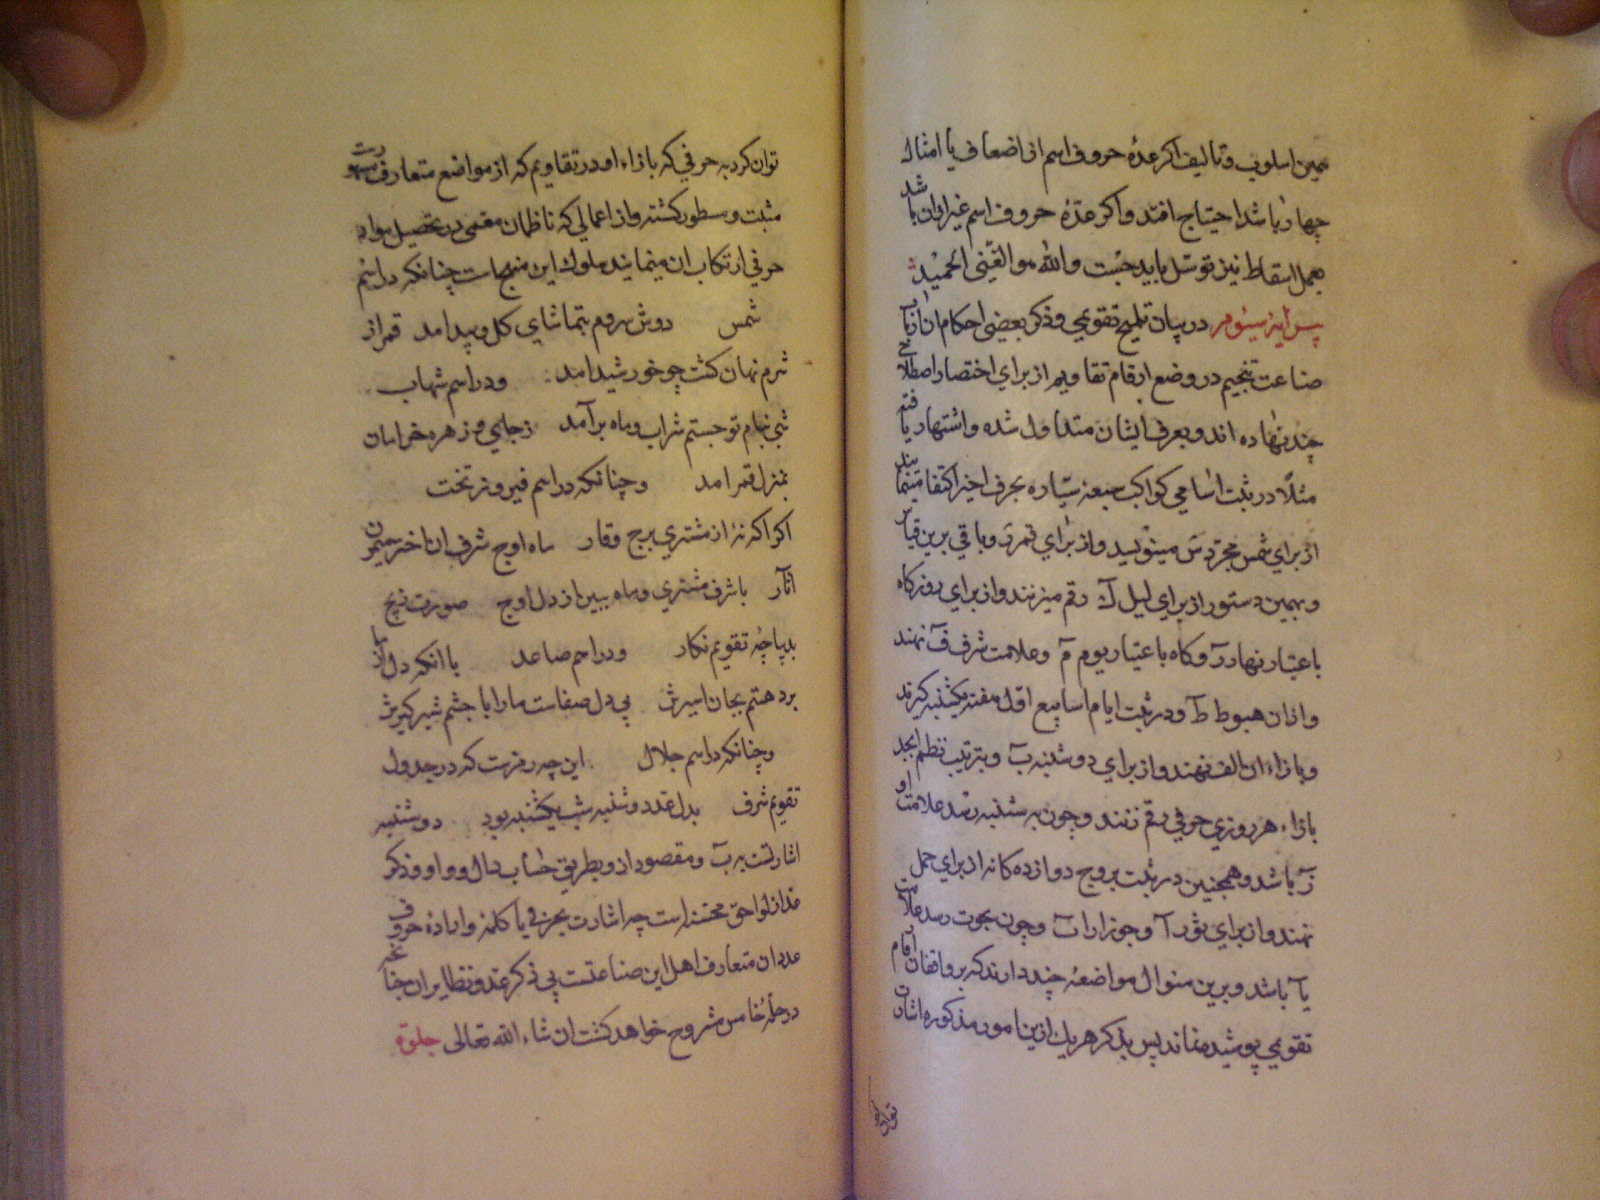 همین اسلوب و تالیف اکر عدهٔ حروف اسم از اضعاف یا امثال
چهار باشد احتیاج افتد و اکر عدّهٔ حروف اسم غیر ازان باشد
بعمل اسقاط نیز توسّل باید جست والله هو الغنی الحمید
پیرایهٔ سیوم در بیان تلمیح تقویمی و ذکر بعضی احکام ان ارباب
صناعت تنجیم در وضع ارقام تقاویم از برای اختصار اصطلاحی
چند نهاده اند و بعرف ایشان متداول شده و اشتهار یافته
مثلًا در ثبت اسامی کواکب سبعهٔ سیّاره بحرف اخیر اکتفا مینمایند
از برای شمس مجرّد س مینویسید و از برای قمر ر و باقی برین قیاس
و بهمین دستور از برای لیل ل رقم میزنند و از برای روز کاه
باعتبار نهار ر و کاه باعتبار یوم م و علامت شرف ف نهند
و ازان هبوط ط و در ثبت ایام اسابیع اول هفته یکشنبه کیرند
و بازاء ان الف نهند و از برای دوشنبه ب و بترتیب نظم ابجد
بازاء هر روزی حرفی رقم زنند و چون به شنبه رسد علامت او
ز باشد و همچنین در ثبت بروج دوازده کانه از برای حمل
نهند و از برای ثور ا و جوزا را ب و چون بحوت رسد علامت
یا باشد و برین منوال مواضعهٔ چند دارند که بر واقفان ارقام
تقویمی پوشیده نماند پس بذکر هر یک ازین امور مذکوره اشارت
توان کرد
توان کرد به حرفی که بازاء او در تقاویم که از مواضع متعارف
مثبت و مسطور کشته و از اعمالی که ناظمان معمی در تحصیل مواد
حرفی ارتکاب ان مینمایند سلوک این منهجاست چنانکه در اسم
شمس دوش مروم بتماشای کل و بید امد قمر از
شرم نهان کشت چو خورشید امد ودر اسم شهاب
شبی بنام تو جستم شراب و ماه برآمد ز جای و زهره خرامان
بمنزل قمر امد و چنانکه در اسم فیروز تخت
اکر اکه نهٔ از مشتری برج وقار ماه اوج شرف ان اختر میمون
اثار با شرف مشتری و ماه ببین از دل اوج صورت زیج
بدیباچهٔ تقویم نکار ودر اسم صاعد با انکه دل
برد هتم بجان اسیرش بی دل صفاست مارا با چشم شیرکیرش
و چنانکه در اسم جلال این چه رمزیست که در جدول
تقویم شرف بدل عدد و شنبه شب یکشنبه بود دوشنبه
اشارتست به ب و مقصود ازو بطریق حساب دال و واو و ذکر
عدد از لواحق محتسنه است چه اشارت بحرفی یا کلمه و ارادهٔ حروف
عدد ان متعارف اهل این صناعتست بی ذکر عدد و نظایر ان چنانچه
در حلهٔ خامس مشروح خواهد کشت ان شاء الله تعالی جلوة